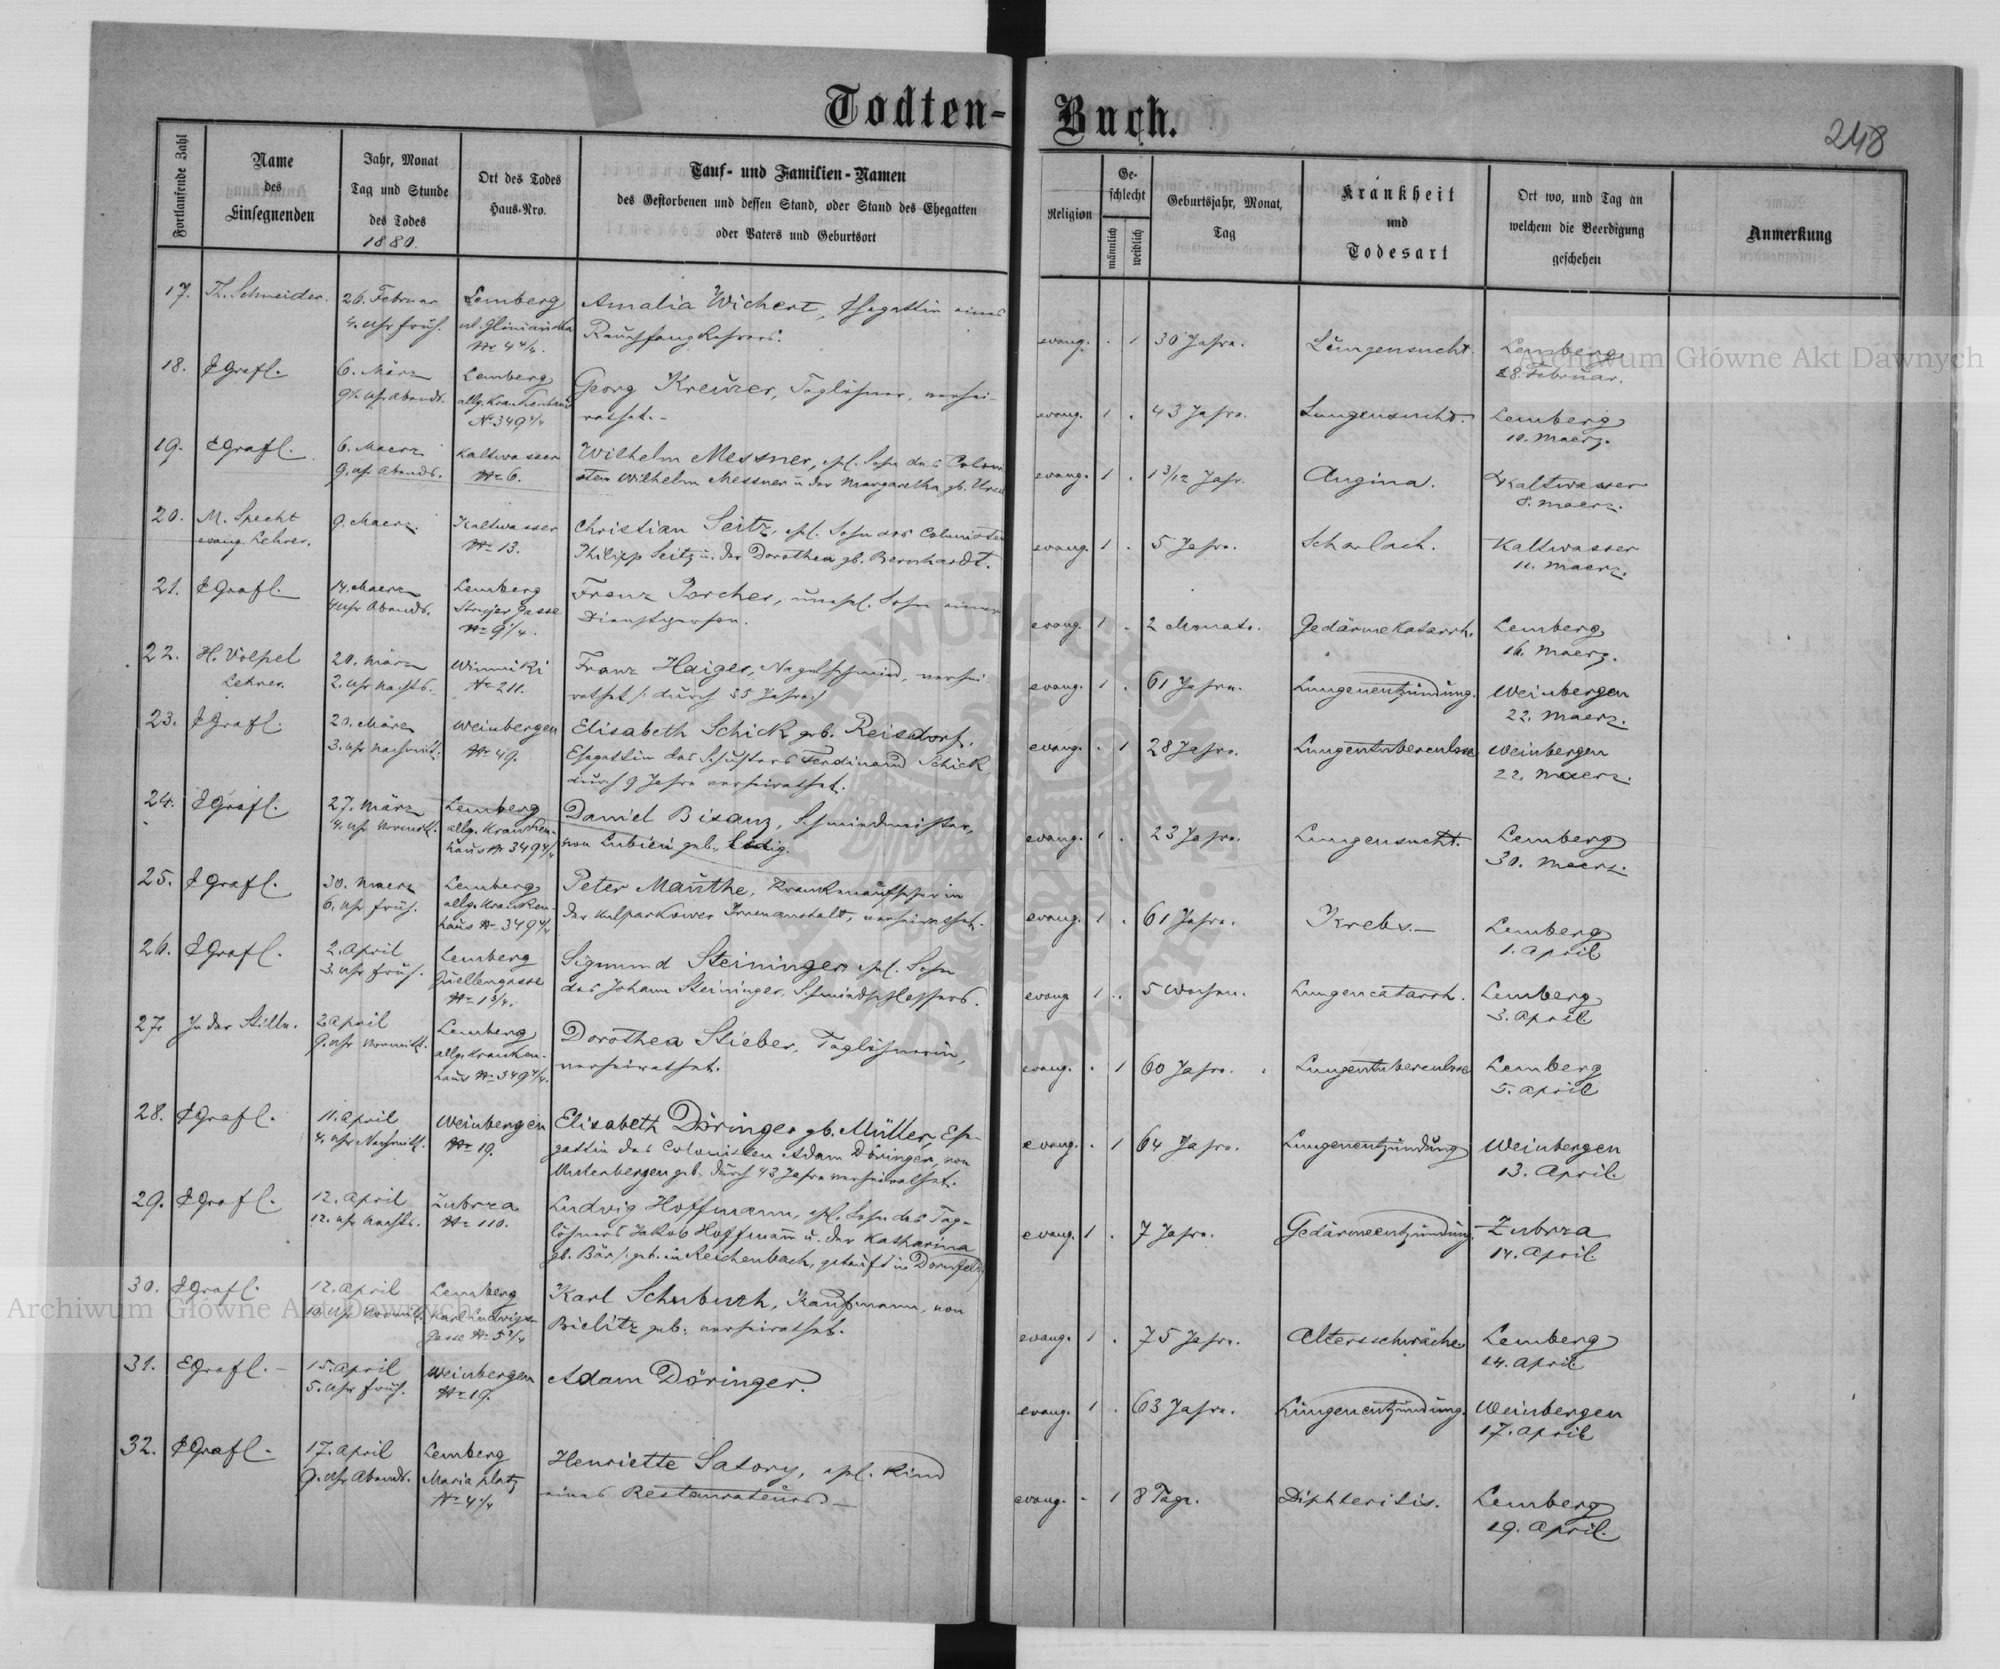 Todten-Buch.
248
Fortlaufende Zahl
Name
des
Einsegnenden
Jahr, Monat
Tag und Stunde
des Todes
1880.
Ort des Todes
Haus-Nro.
Tauf- und Familien-Namen
des Gestorbenen und dessen Stand, oder Stand des Ehegatten
oder Vaters und Geburtsort
Religion
Ge-
schlecht
männlich
weiblich
Geburtsjahr, Monat,
Tag
Krankheit
und
Todesart
Ort wo, und Tag an
welchem die Beerdigung
geschehen
Anmerkung
17. Th. Schneider. 26. Februar Lemberg Amalia Wichert, Ehegattin eines
4. Uhr früh. ul. Gliniańska Rauchfangkehrers.
No 4 4/4.
evang. . 1 30 Jahre. Lungensucht. Lemberg
28. Februar.
18. EGrafl. 6. März Lemberg Georg Kreuzer, Taglöhner, verhei-
Uhr Abends. allg. Krankenhaus rathet.-
No 349 4/4
evang. 1 . 43 Jahre. Lungensucht. Lemberg
10. Maerz.
19. EGrafl. 6. Maerz Kaltwasser Wilhelm Messner, ehl. Sohn des Coloni-
9. Uhr Abends. No 6. sten Wilhelm Messner u der Margaretha gb.
evang. 1 . 1 3/12 Jahr. Angina. Kaltwasser
8. Maerz.
20. M. Specht 9. Maerz. Kaltwasser Christian Seitz, ehl. Sohn des Colonisten
evang. Lehrer. No 13. Philipp Seitz u. der Dorothea gb. Bernhardt.
evang. 1 . 5 Jahre. Scharlach. Kaltwasser
11. Maerz.
21. EGrafl. 14. Maerz Lemberg Franz Porcher, unehl. Sohn einer
4 Uhr Abends. Stryjer Gasse Dienstperson.
No 9 1/4.
evang. 1 . 2 Monate. Gedärmekatarrh. Lemberg
16. Maerz.
22. H. Völpel 20. März Winniki Franz Haiges, Nagelschmied, verhei-
Lehrer. 2. Uhr Nachts. No 211. rathet /: durch 35 Jahre:/
evang. 1 . 61 Jahre. Lungenentzündung. Weinbergen
22. Maerz.
23. EGrafl. 20. März Weinbergen Elisabeth Schick geb. Reisdorf,
3. Uhr Nachmitt. No 49. Ehegattin des Schusters Ferdinand Schick,
durch 9 Jahre verheirathet.
evang. . 1 28 Jahre. Lungentuberculose Weinbergen
22. Maerz.
24. EGrafl. 27. März Lemberg Daniel Bisanz, Schmiedmeister,
4. Uhr Vormitt. allg. Kranken- von Lubien geb., Ledig.
haus No 349 4/4
evang. 1 . 23 Jahre. Lungensucht. Lemberg
30. Maerz.
25. EGrafl. 30. Maerz Lemberg Peter Mauthe, Krankenaufseher in
6. Uhr früh. allg. Kranken- der Kulparkower Irrenanstalt, verheirathet.
haus No 349 4/4
evang. 1 . 61 Jahre. Krebs.— Lemberg
1. April
26. EGrafl. 2. April Lemberg Sigmund Steininger, ehl. Sohn
3. Uhr früh. Quellengasse des Johann Steininger, Schmiedschlossers.
No 1 3/4.
evang 1 . 5 Wochen. Lungencatarrh. Lemberg
3. April.
27. In der Stille. 3. April Lemberg Dorothea Stieber, Taglöhnerin,
9. Uhr Vormitt. allg. Kranken- verheirathet.
haus No 349 4/4.
evang. . 1 60 Jahre. Lungentuberculose Lemberg
5. April
28. EGrafl. 11. April Weinbergen Elisabeth Döringer gb. Müller, Ehe-
4. Uhr Nachmitt. No 19. gattin des Colonisten Adam Döringer, von
Unterbergen geb. durch 43 Jahre verheirathet.
evang. . 1 64 Jahre. Lungenentzündung Weinbergen
13. April.
29. EGrafl. 12. April Zubrza Ludwig Hoffmann, ehl. Sohn des Tag-
12. Uhr Nachts. No 110. löhners Jakob Hoffmann u. der Katharina
gb. Bär /: geb. in Reichenbach, getauft in Dornfeld
evang. 1 . 7 Jahre. Gedärmeentzündung. Zubrza
14. April.
30. EGrafl. 12. April Lemberg Karl Schubuth, Kaufmann, von
10. Uhr Vormitt. Karl Ludwigs- Bielitz geb., verheirathet.
gasse No 5 2/4
evang. 1 . 75 Jahre. Altersschwäche Lemberg
14. April
31. EGrafl. - 15. April Weinbergen Adam Döringer.
5. Uhr früh. No 19.
evang. 1 . 63 Jahre. Lungenentzündung. Weinbergen
17. April
32. EGrafl. 17. April Lemberg Henriette Satory, ehl. Kind
9. Uhr Abends. Maria platz eines Restaurateurs —
No 4 1/4
evang. - 1 8 Tage. Diphteritis. Lemberg
19. April.
Archiwum Główne Akt Dawnych
Archiwum Główne Akt Dawnych
ARCHIWUM GŁÓWNE AKT DAWNYCH